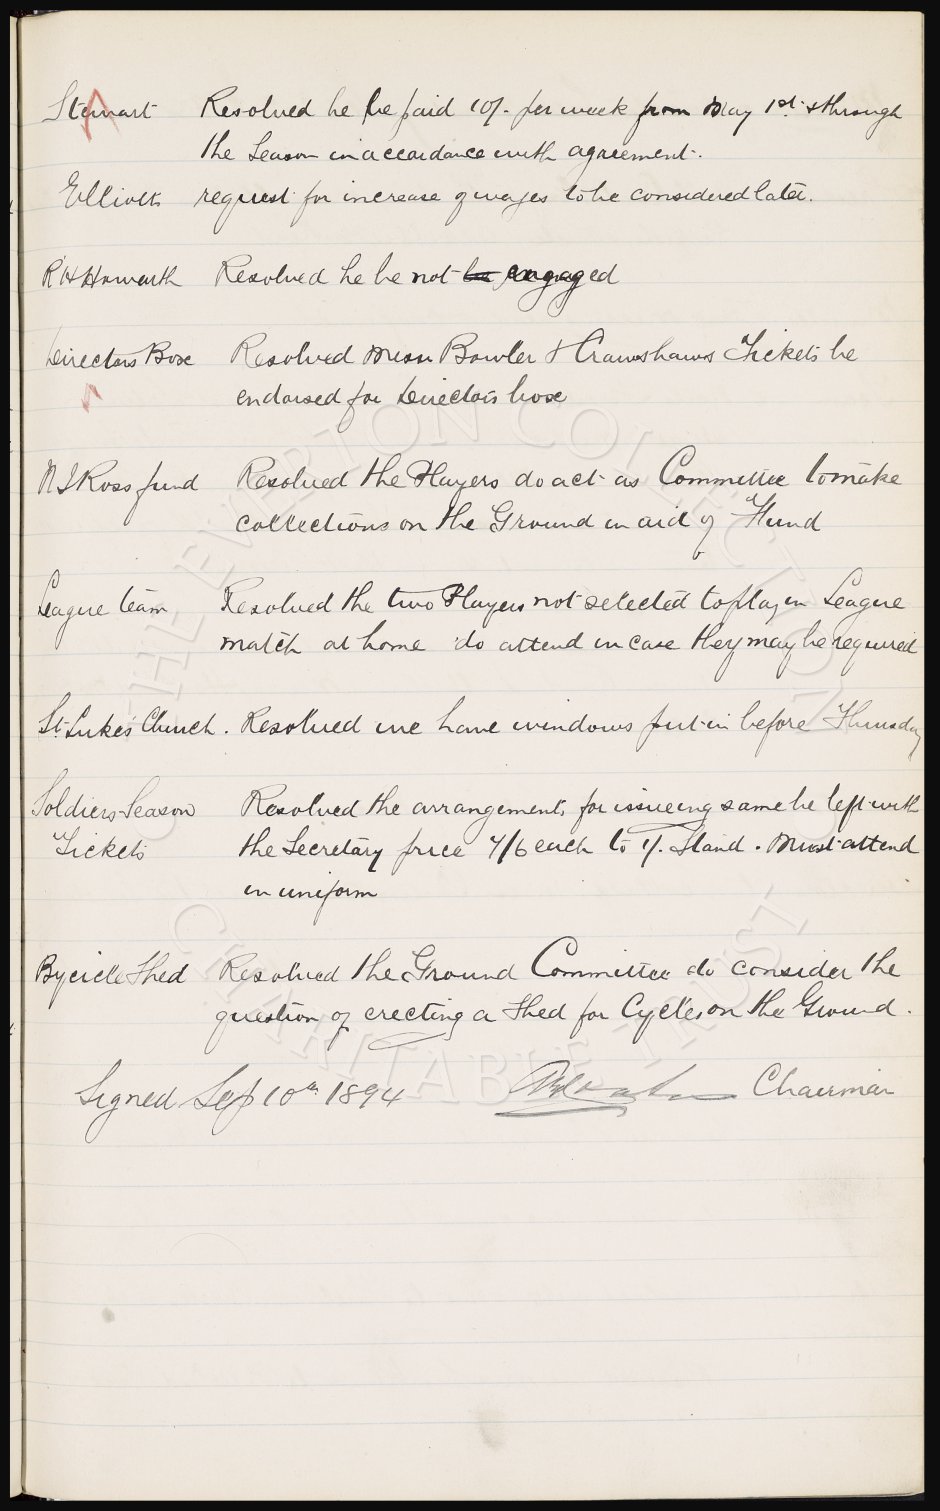 Stewart Resolved he be paid 10/- per week from May 1st & through
the Season in accordance with agreement.
Elliotts request for increase of wages to be considered later.
R H Howarth Resolved he be not be engaged
Directors Box Resolved Messrs Bowler & Crawshaws Tickets be
endorsed for Directors box
N J Ross fund Resolved the Players do act as Committee to make
collections on the Ground in aid of Fund
League team Resolved the two Players not selected to play in League
match at home do attend in case they may be required
St Lukes Church. Resolved we have windows put in before Thursday
Soldiers Season Resolved the arrangements for issueing same be left with
Tickets the Secretary price 7/6 each to 1/- Stand. Must attend
in uniform
Bycicle Shed Resolved the Ground Committee do consider the
question of erecting a Shed for Cycles on the Ground.
Signed Sep 10th 1894 Chairman
THE EVERTON COLLECTION
CHARITABLE TRUST